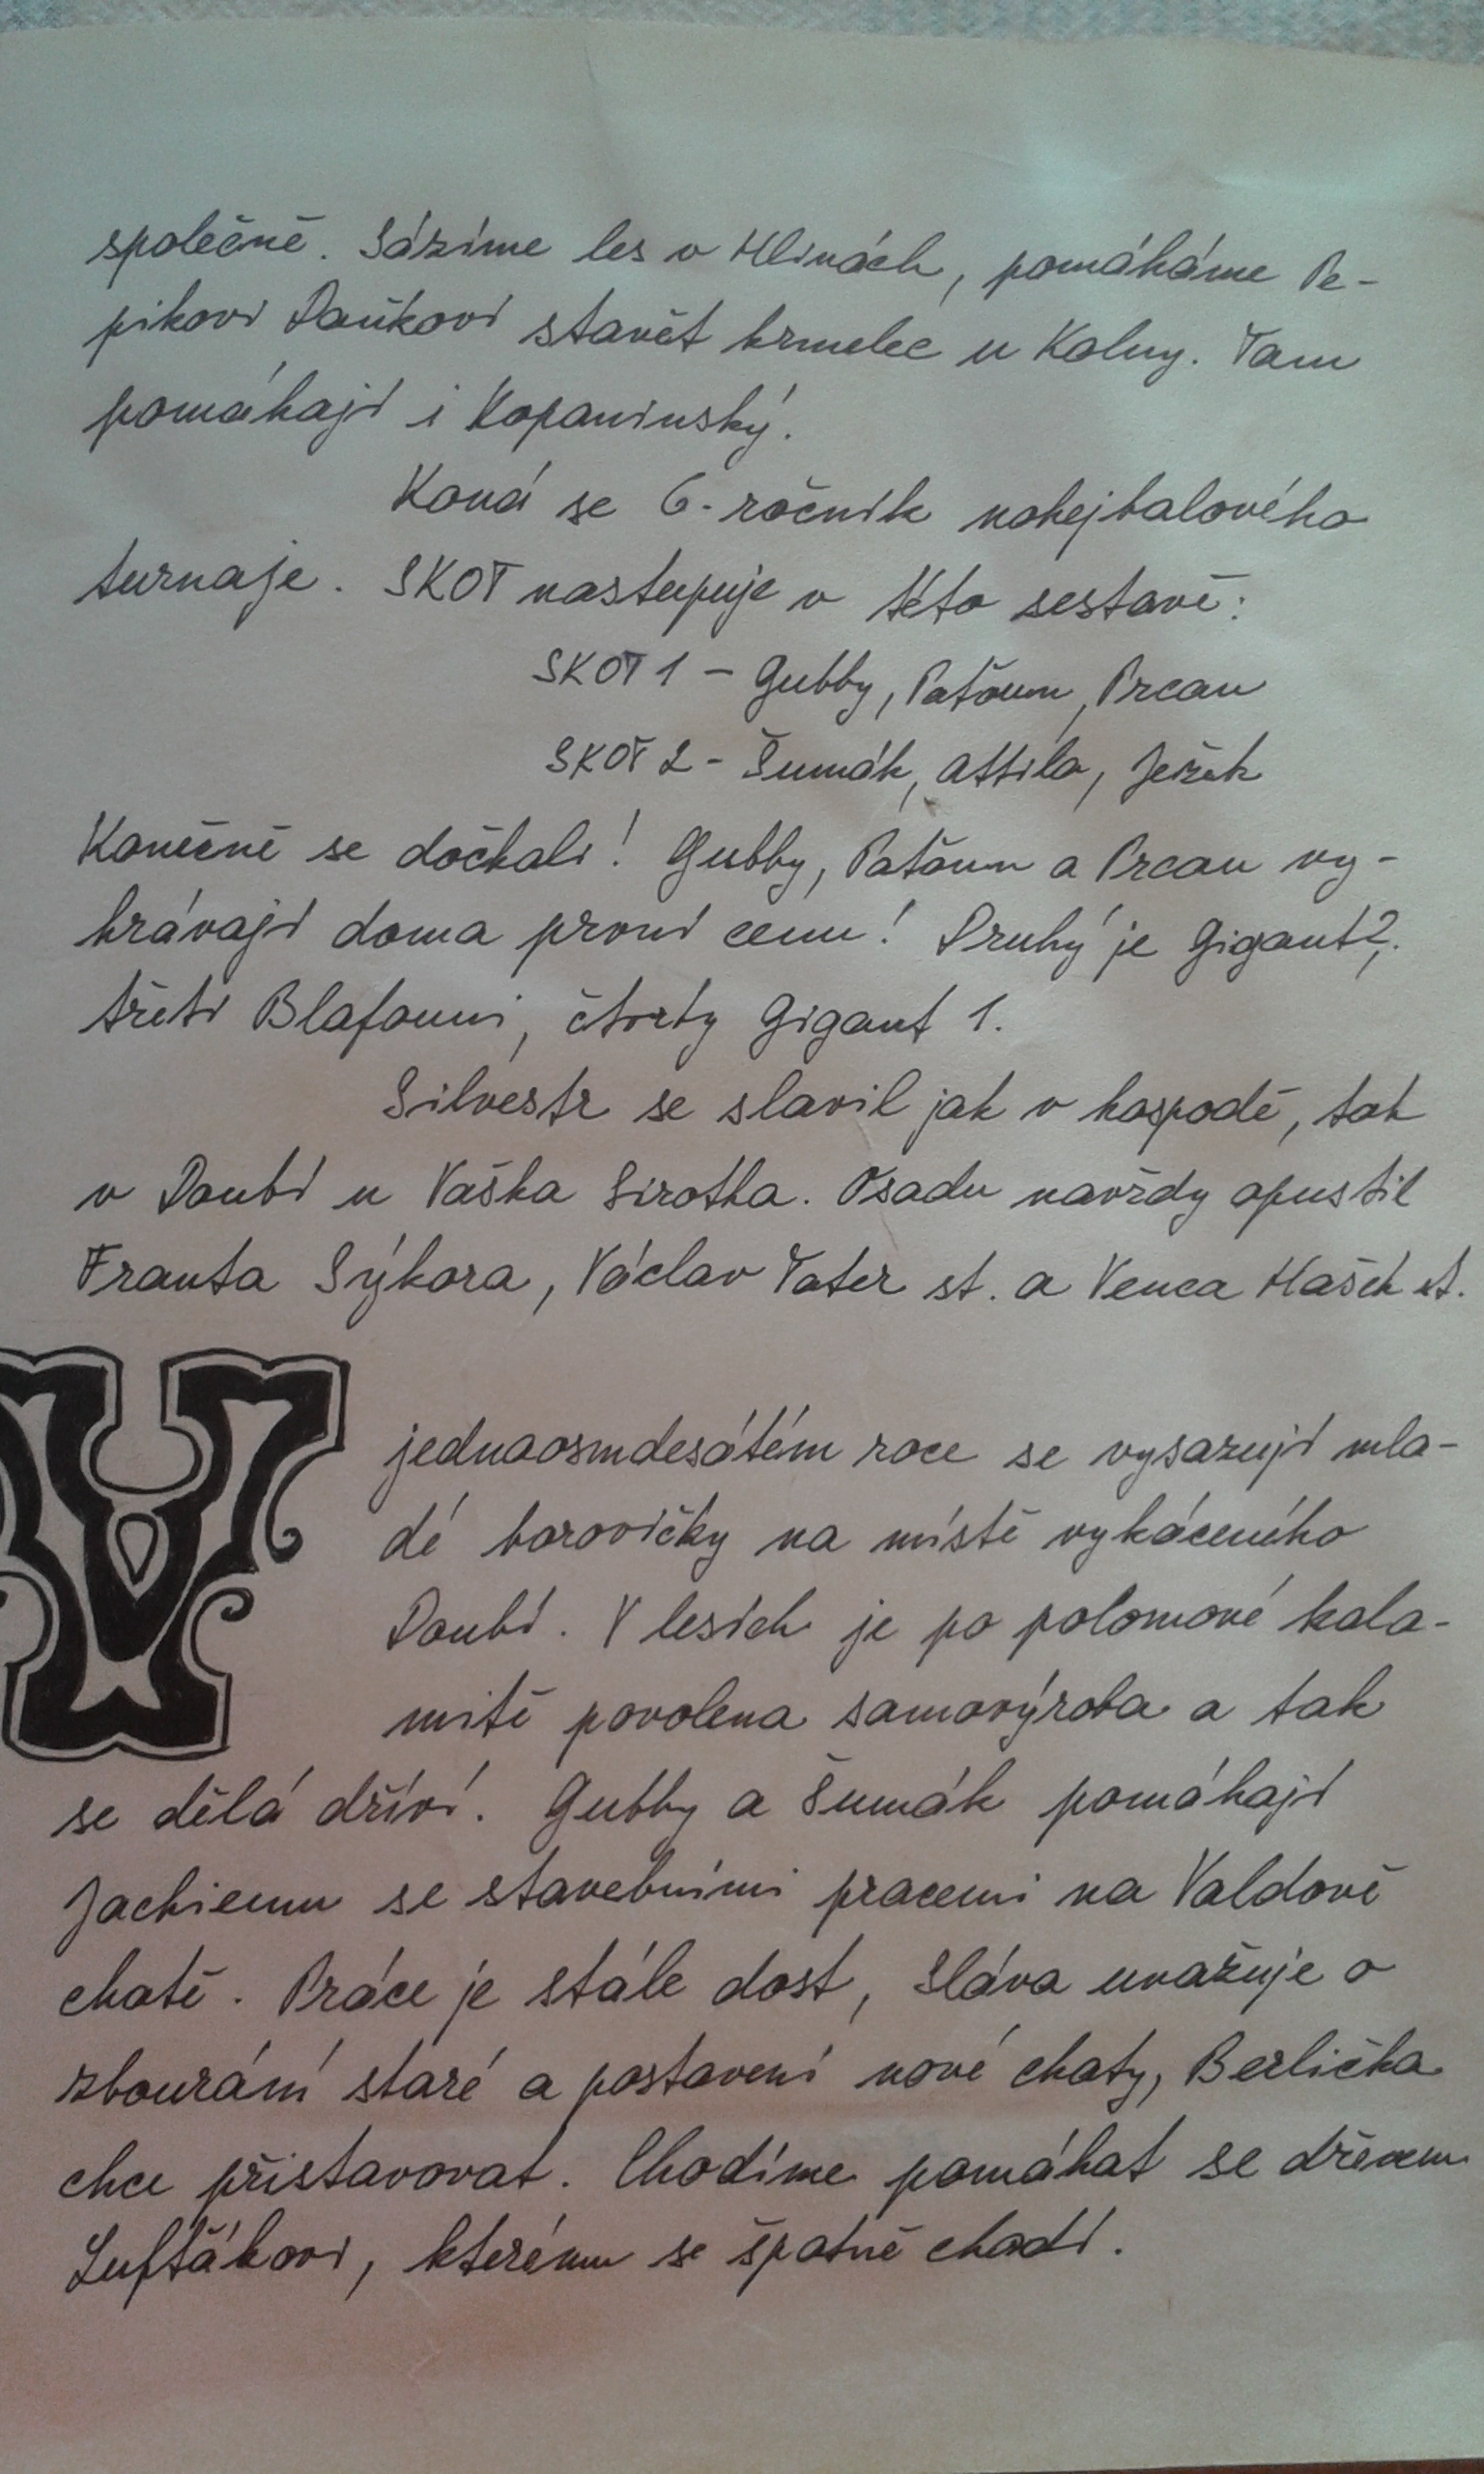 společně. Sázíme les v Hlinách, pomáháme Pe-
píkovi Daňkovi stavět krmelec u Kolny. Tam
pomáhají i Kopaninský.
Koná se 6. ročník nohejbalového
turnaje. SKOT nastupuje v této sestavě:
SKOT 1 - Gubby, Paťoun, Prcan
SKOT 2 - Šumák, Attila, Ježek
Konečně se dočkali! Gubby, Paťoun a Prcan vy-
hrávají doma první cenu! Druhý je Gigant 2,
třetí Blafouni, čtvrtý Gigant 1.
Silvestr se slavil jak v hospodě, tak
v Doubí u Vaška Sirotka. Osadu navždy opustil
Franta Sýkora, Václav Tater st. a Venca Hašek st.
V jednaosmdesátém roce se vysazují mla-
dé borovičky na místě vykáceného
Doubí. V lesích je po polomové kala-
mitě povolena samovýroba a tak
se dělá dříví. Gubby a Šumák pomáhají
Jackiemu se stavebními pracemi na Valdově
chatě. Práce je stále dost, Sláva uvažuje o
zbourání staré a postavení nové chaty, Berlička
chce přistavovat. Chodíme pomáhat se dřevem
Lufťákovi, kterému se špatně chodí.